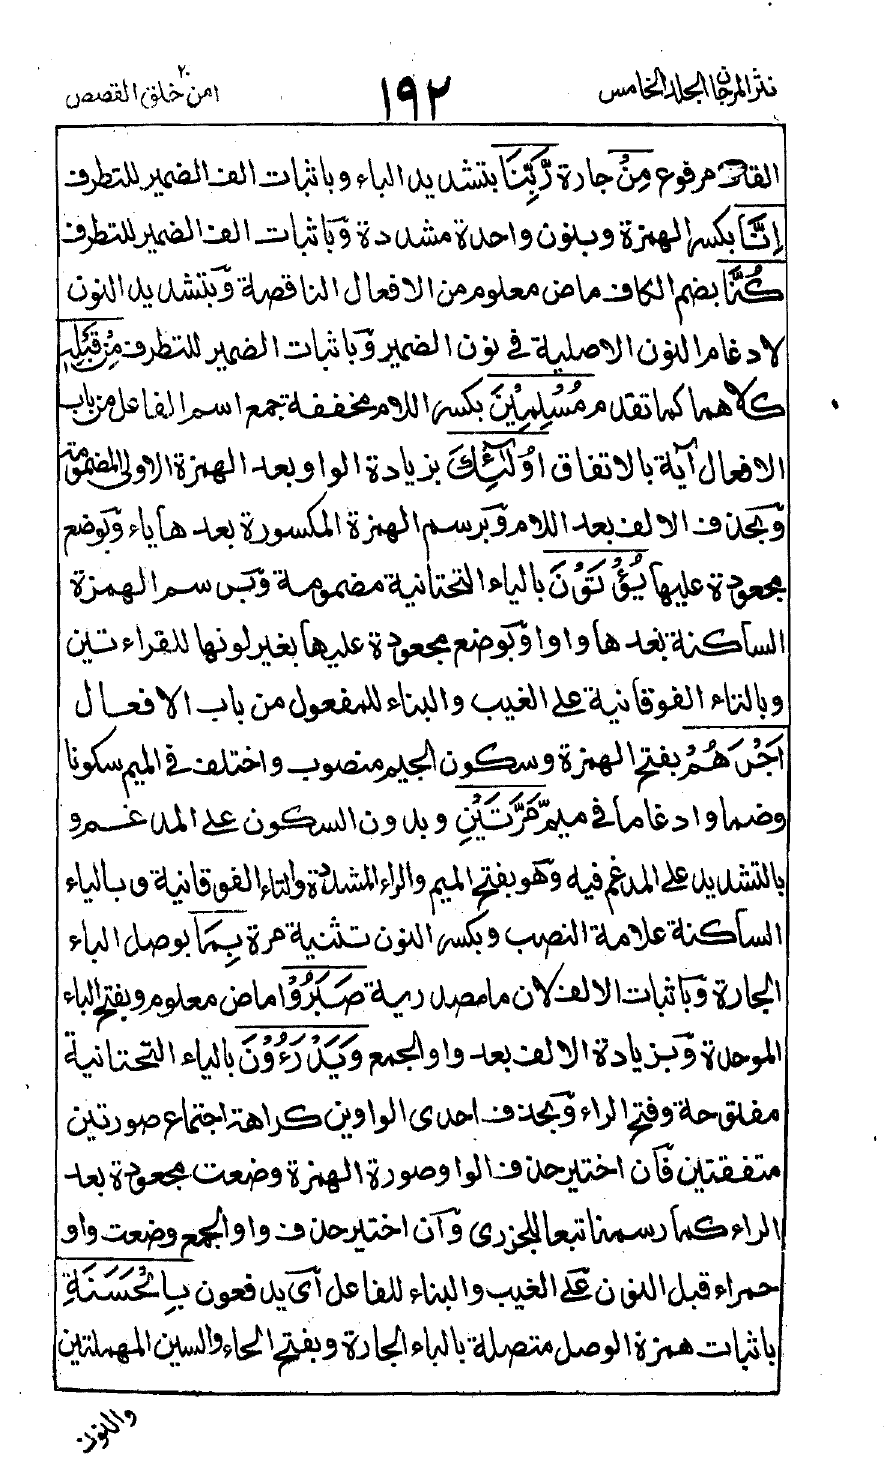 نثر المرجان الجلد الخامس
١٩٢
امن خلق ٢٠ القصص
القاف مرفوع مِنْ جارة رَّبِّنَا بتشديد الباء وباثبات الف الضمير للتطرف
إِنَّا بكسر الهمزة وبنون واحدة مشددة وباثبات الف الضمير للتطرف
كُنَّا بضم الكاف ماض معلوم من الافعال الناقصة وبتشديد النون
لادغام النون الاصلية في نون الضمير وباثبات الضمير للتطرف مِنْ قَبْلِهِ
كلاهما كما تقدم مُسْلِمِيْنَ بكسر اللام مخففة جمع اسم الفاعل من باب
الافعال آية بالاتفاق اُولٰٓئِكَ بزيادة الواو بعد الهمزة الاولى المضمومة
وبحذف الالف بعد اللام وبرسم الهمزة المكسورة بعدها ياء وبوضع
مجعودة عليها يُؤْتَوْنَ بالياء التحتانية مضمومة وبرسم الهمزة
الساكنة بعدها واوا وبوضع مجعودة عليها بغير لونها للقراءتين
وبالتاء الفوقانية على الغيب والبناء للمفعول من باب الافعال
اَجْرَهُمْ بفتح الهمزة وسكون الجيم منصوب واختلف في الميم سكونا
وضما وادغاما في ميم مَّرَّتَيْنِ وبدون السكون على المدغم و
بالتشديد على المدغم فيه وهو بفتح الميم والراء المشددة والتاء الفوقانية وبالياء
الساكنة علامة النصب وبكسر النون تثنية مرة بِمَا بوصل الباء
الجارة وباثبات الالف لان ما مصدرية صَبَرُوْا ماض معلوم وبفتح الباء
الموحدة وبزيادة الالف بعد واو الجمع وَيَدْرَءُوْنَ بالياء التحتانية
مفتوحة وفتح الراء وبحذف احدى الواوين كراهة اجتماع صورتين
متفقتين فان اختير حذف الواو صورة الهمزة وضعت مجعودة بعد
الراء كما رسمنا تبعا للجزري وان اختير حذف واو الجمع وضعت واو
حمراء قبل النون على الغيب والبناء للفاعل اى يدفعون بِالْحَسَنَةِ
باثبات همزة الوصل متصلة بالباء الجارة وبفتح الحاء والسين المهملتين
والنون